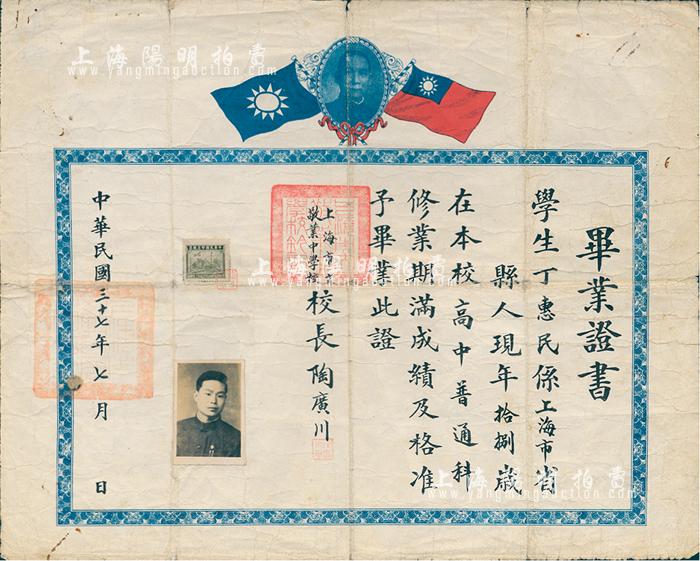 畢業證書
學生丁惠民係上海市省
縣人現年拾捌歲
在本校高中普通科
修業期滿成績及格准
予畢業此證
上海市立
敬業中學校
校長陶廣川
中華民國三十七年七月 日
上海陽明拍賣
www.yangmingauction.com
上海陽明拍賣
www.yangmingauction.com
上海陽明拍賣
www.yangmingauction.com